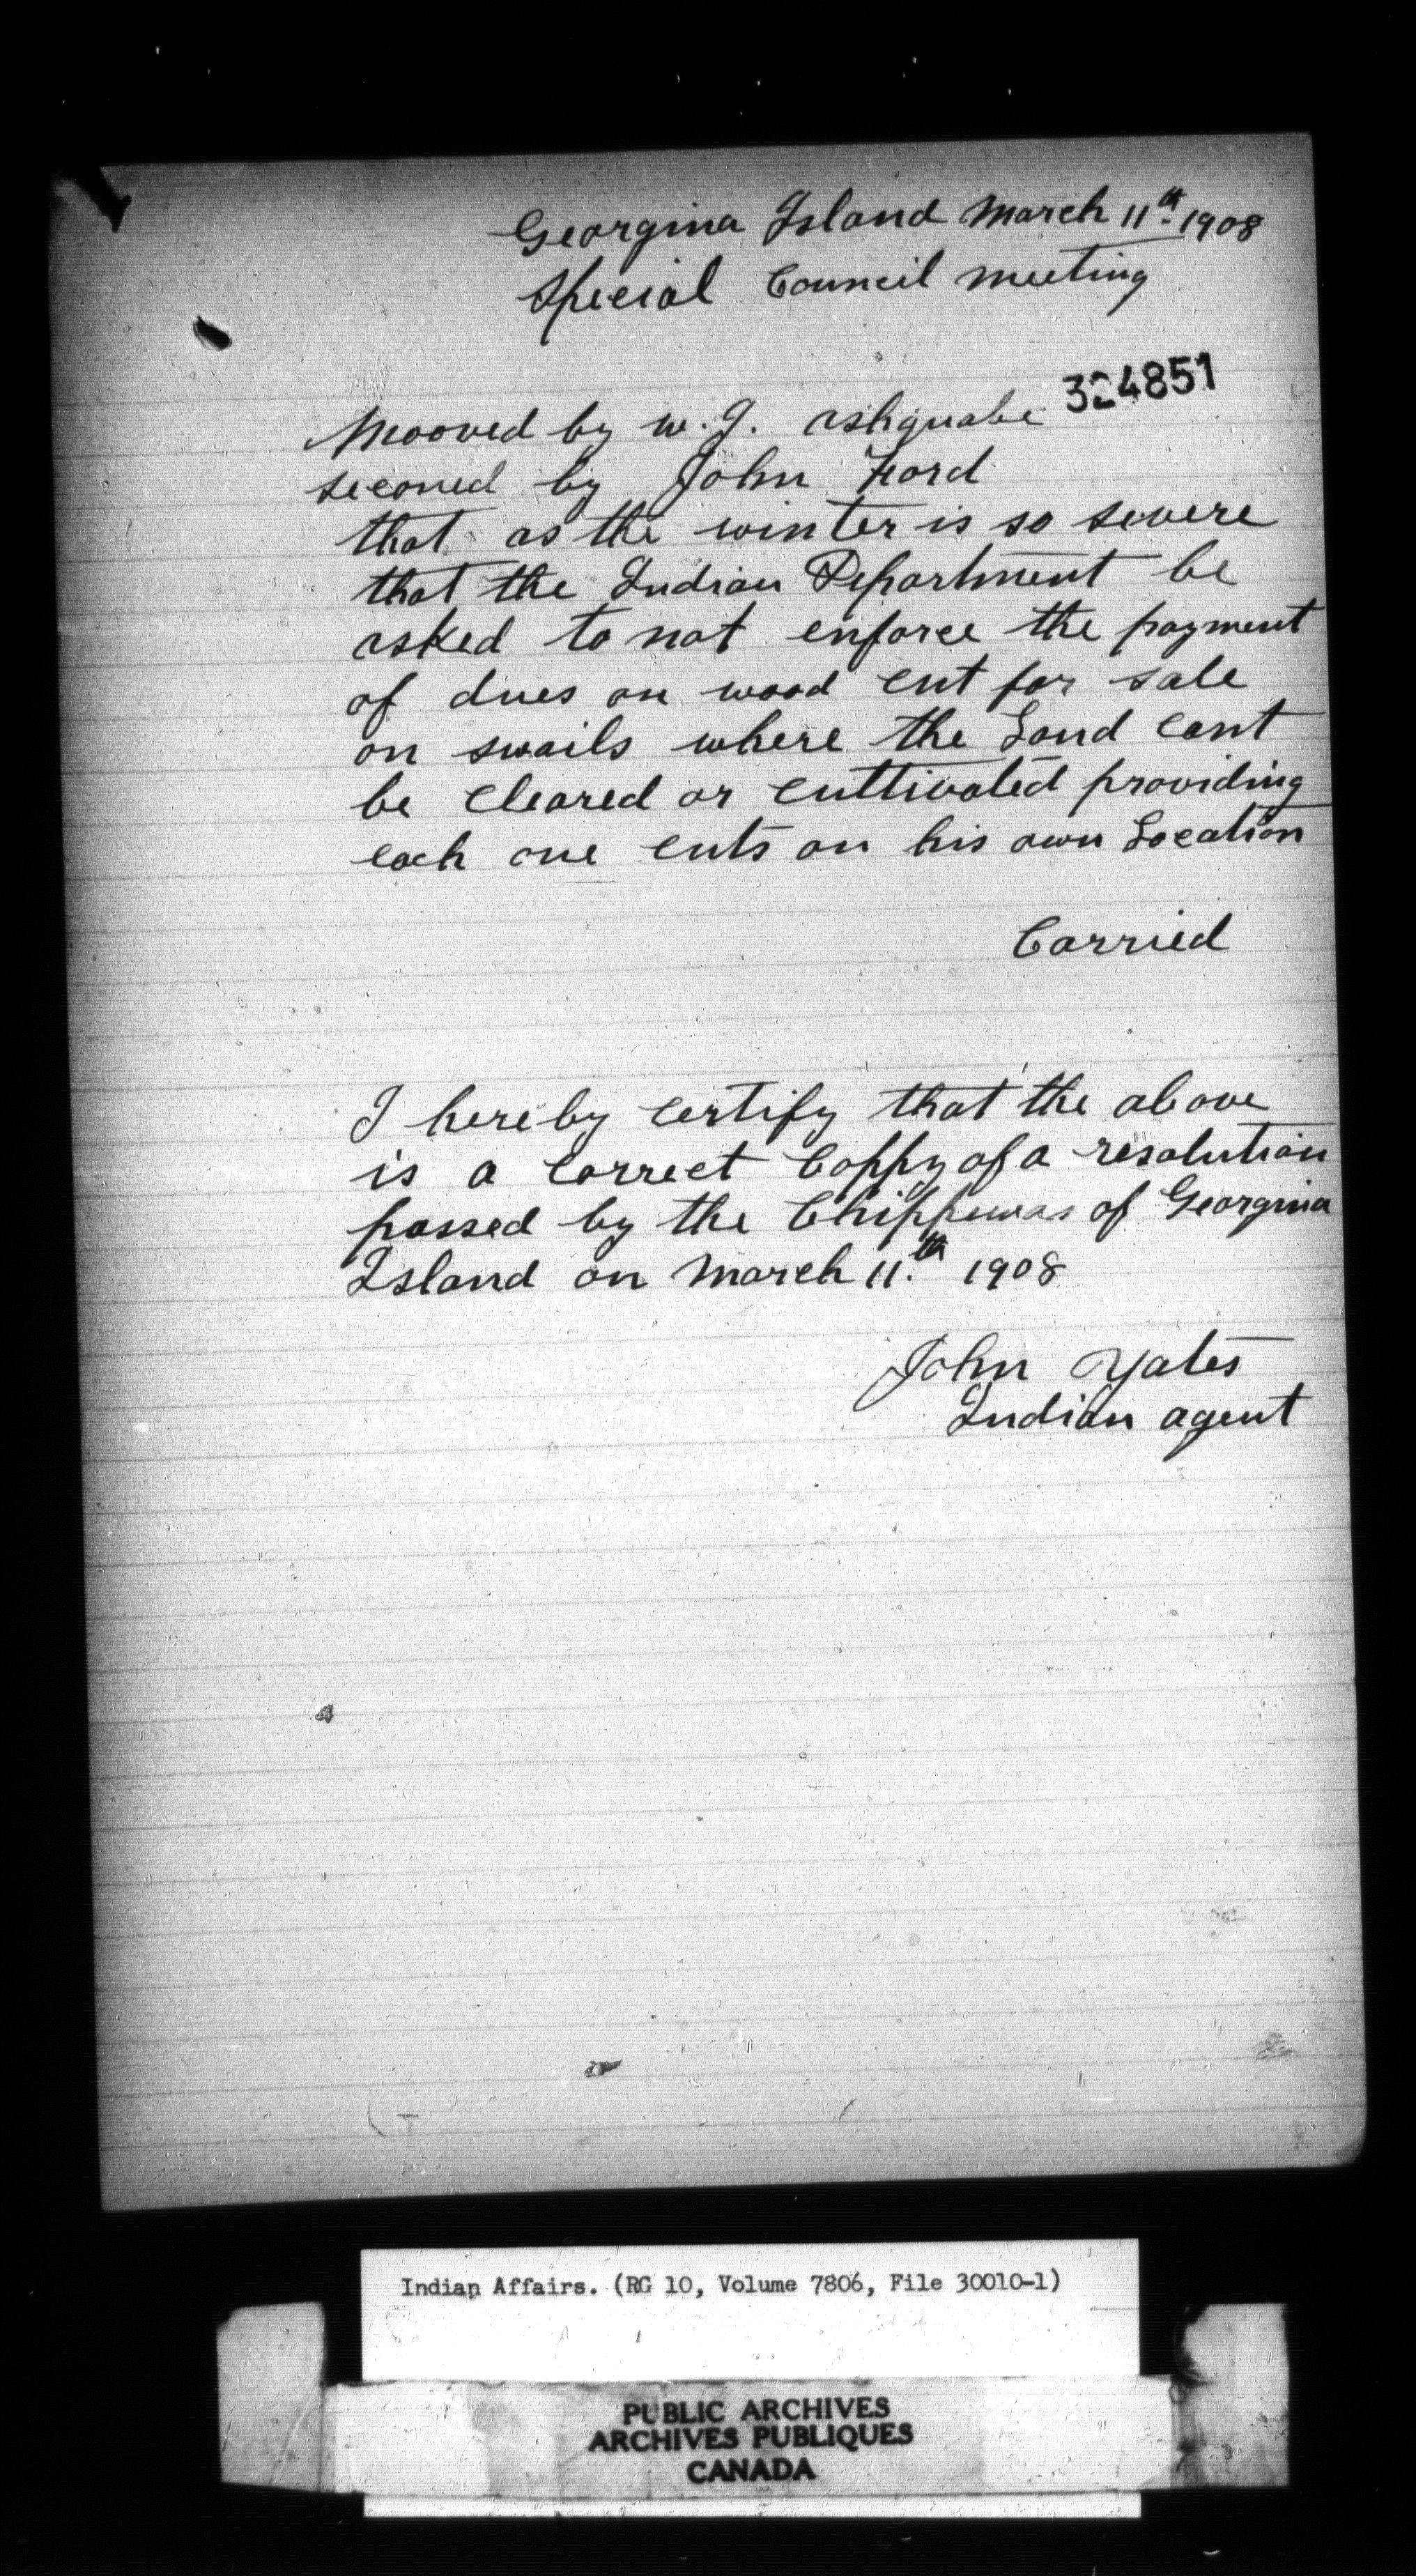 Georgina Island March 11th 1908
Special Council meeting
324851
Mooved by W. J. Ashquabe
seconed by John Ford
that as the winter is so severe
that the Indian Department be
asked to not enforce the payment
of dues on wood cut for sale
on swails where the Land cant
be cleared or cultivated providing
each one cuts on his own Location
Carried
I hereby certify that the above
is a correct Coppy of a resolution
passed by the Chippewas of Georgina
Island on March 11th 1908
John Yates
Indian agent
Indian Affairs. (RG 10, Volume 7806, File 30010-1)
PUBLIC ARCHIVES
ARCHIVES PUBLIQUES
CANADA